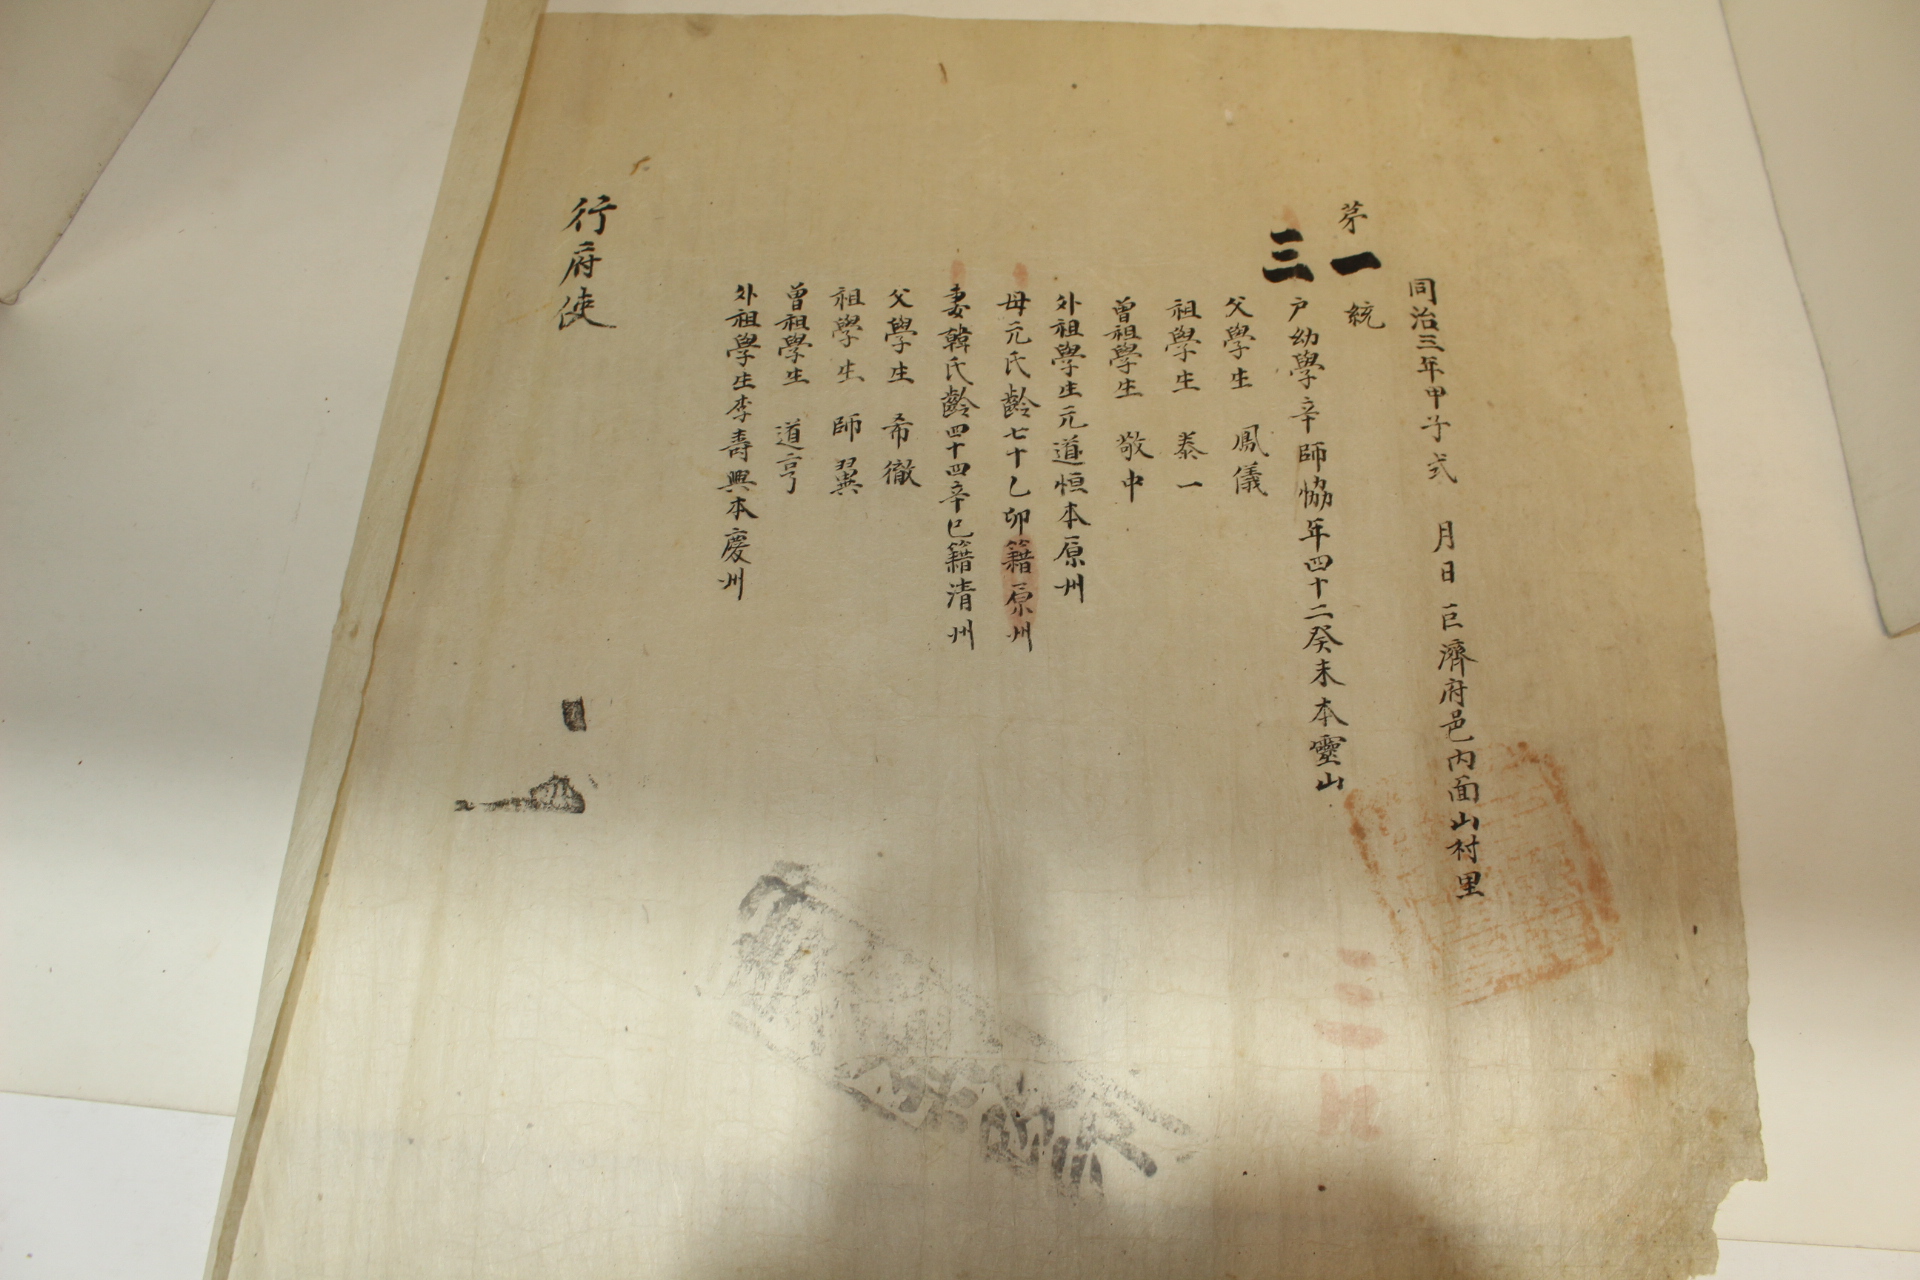 同治三年甲子式 月 日 巨濟府邑內面山村里
茅一統
三戶幼學辛師恊年四十二癸未本靈山
父學生 鳳儀
祖學生 泰一
曾祖學生 敬中
外祖學生元道恒本原州
母元氏齡七十乙卯籍原州
妻韓氏齡四十四辛巳籍淸州
父學生 希徹
祖學生 師翼
曾祖學生 道亨
外祖學生李壽興本慶州
行府使